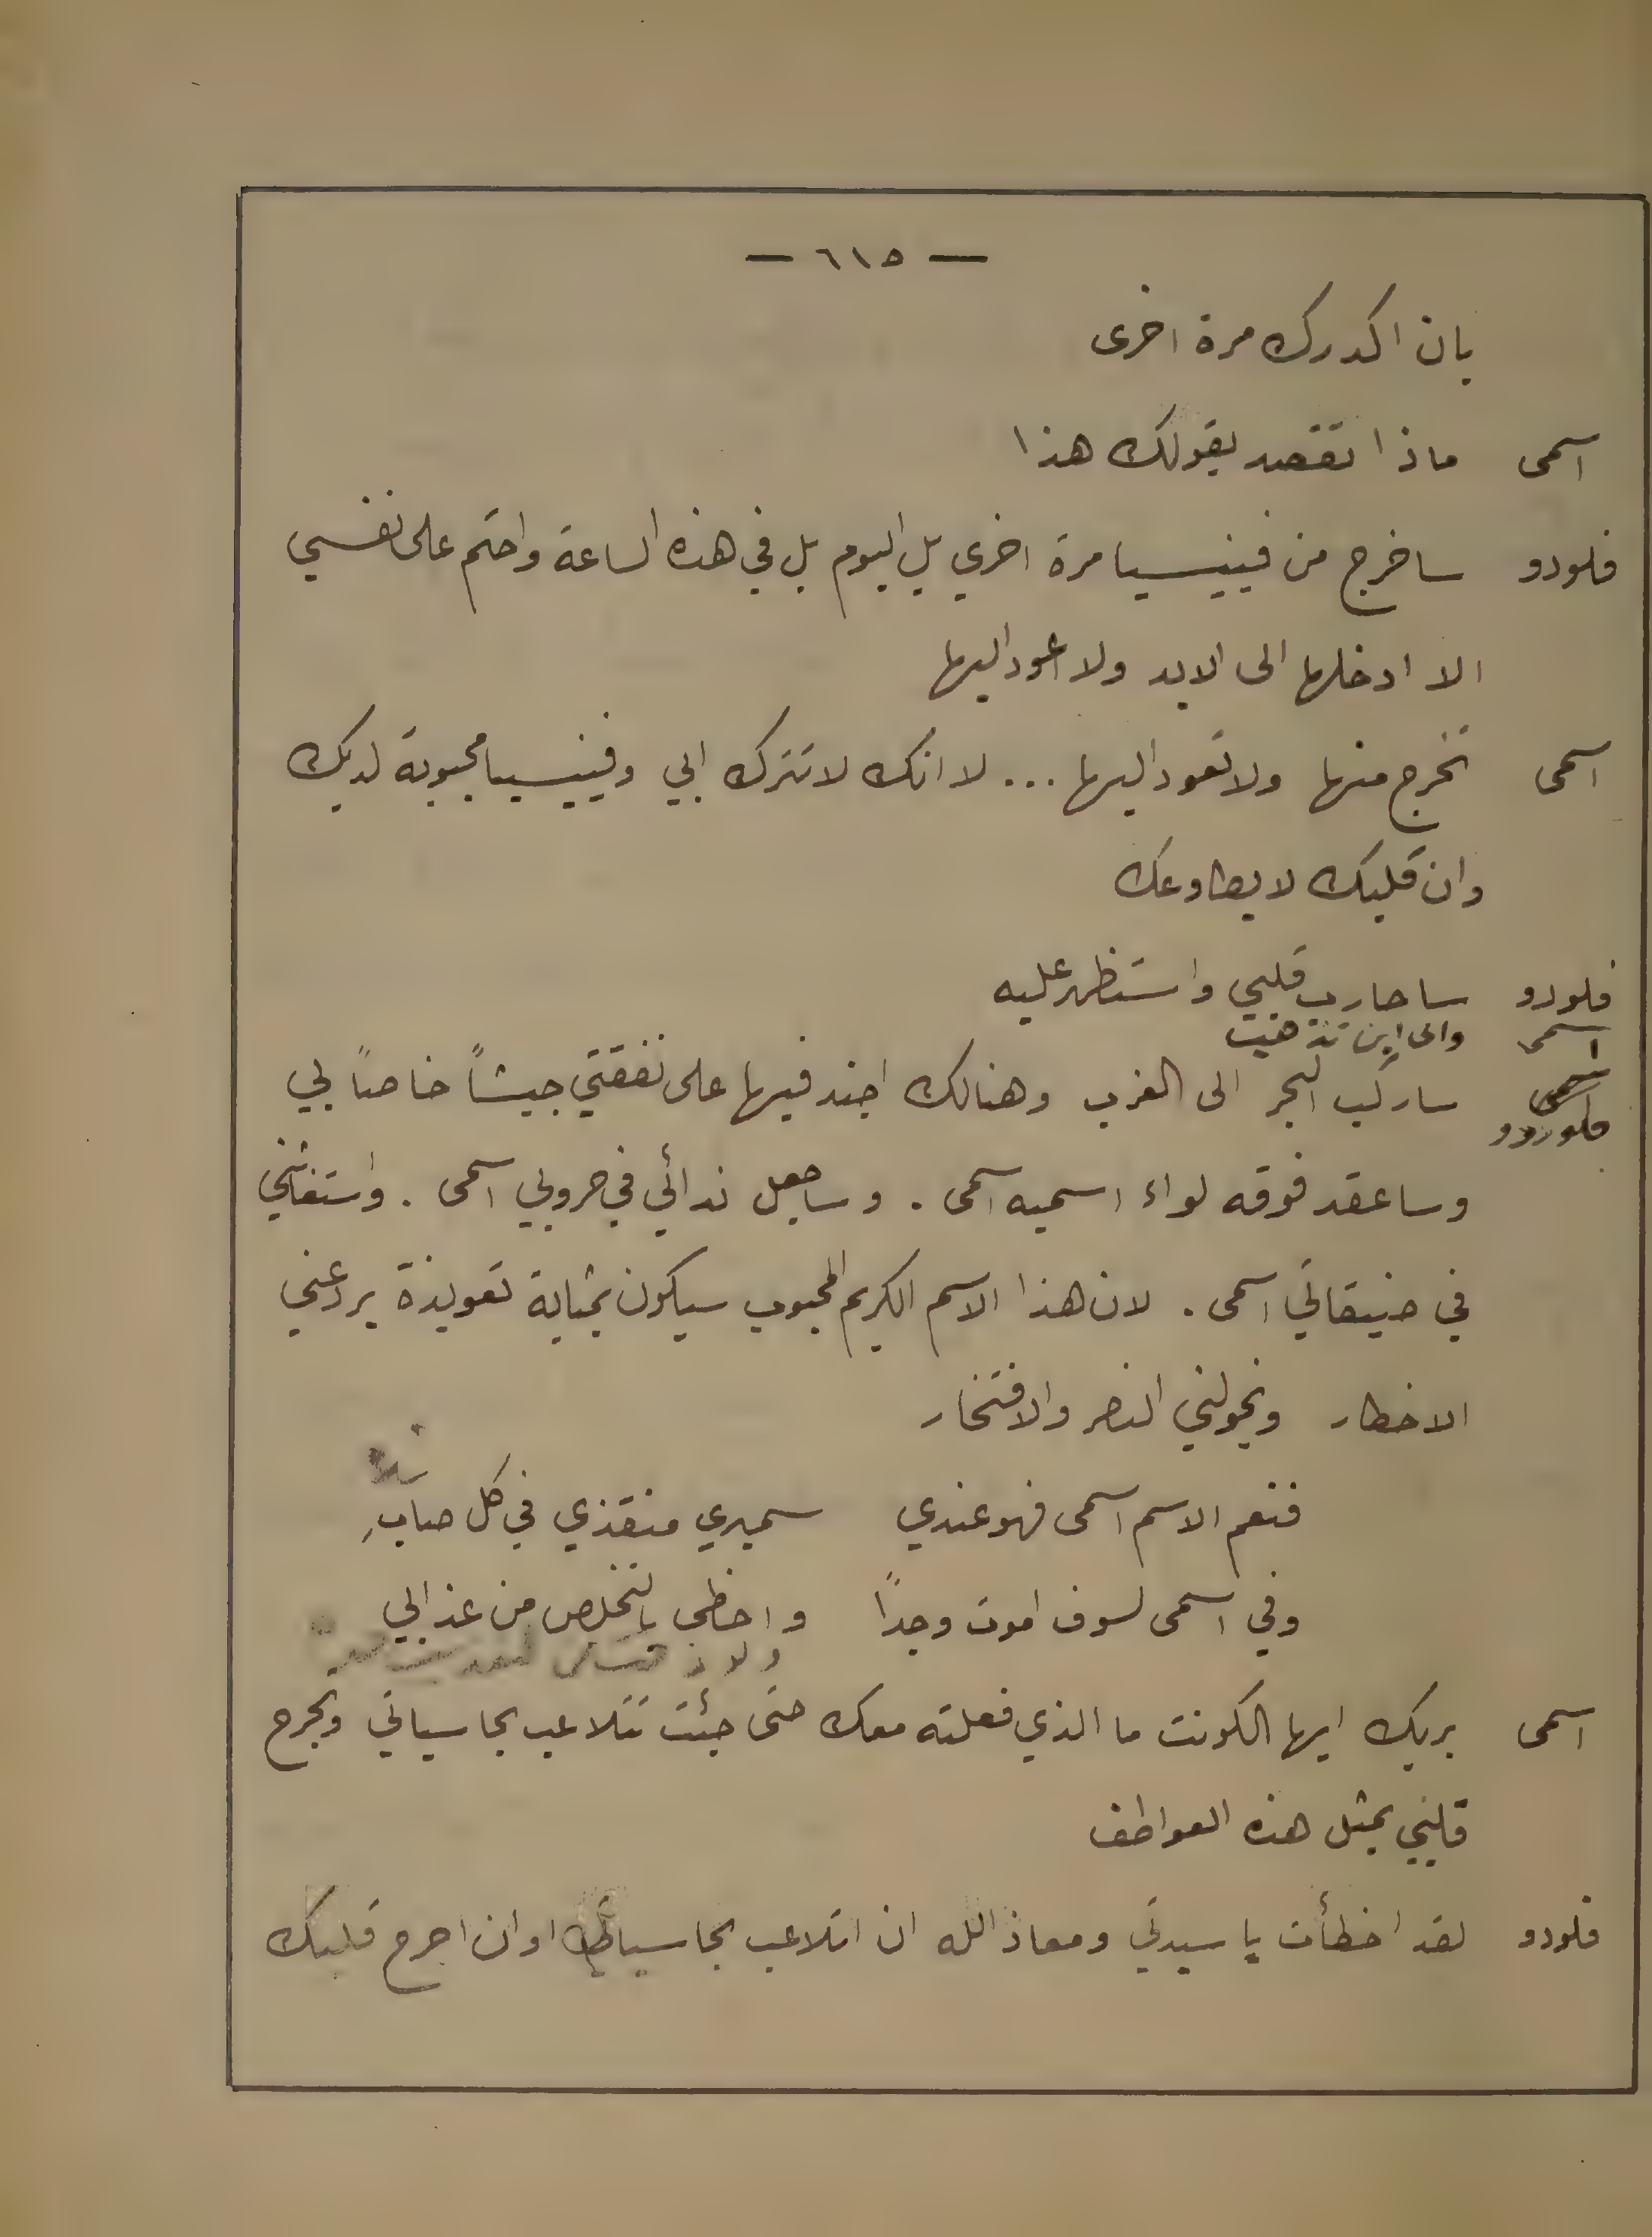 — ٦١٥ —
بان اكدرك مرة اخرى
اسمى ماذا تقصد بقولك هذا
فلودو ساخرج من فينيسيا مرة اخري بل اليوم بل في هذه الساعة واحتم على نفسي
الا ادخلها الى الابد ولا اعود اليها
اسمى تخرج منها ولا تعود اليها ... لا انك لا تترك ابي وفينيسيا محبوبة لديك
وان قلبك لا يطاوعك
فلودو ساحارب قلبي واستظهر عليه
اسمى والى اين تذهب
فلودو ساركب البحر الى الغرب وهنالك اجند فيها على نفقتي جيشاً خاصاً بي
وساعقد فوقه لواء اسميه اسمى . وساجعل ندائي في حروبي اسمى . واستغاثتي
في ضيقاتي اسمى . لان هذا الاسم الكريم المحبوب سيكون بمثابة تعويذة يردعني
الاخطار ويخولني النصر والافتخار
فنعم الاسم اسمى فهو عندي سميري منقذي في كل صاب
وفي اسمى لسوف اموت وجداً واحظى بالتخلص من عذابي
اسمى بربك ايها الكونت ما الذي فعلته معك حتى جئت تتلاعب بحاسياتي وتجرح
قلبي بمثل هذه العواطف
فلودو لقد اخطأت يا سيدتي ومعاذ الله ان اتلاعب بحاسياتك او ان اجرح قلبك